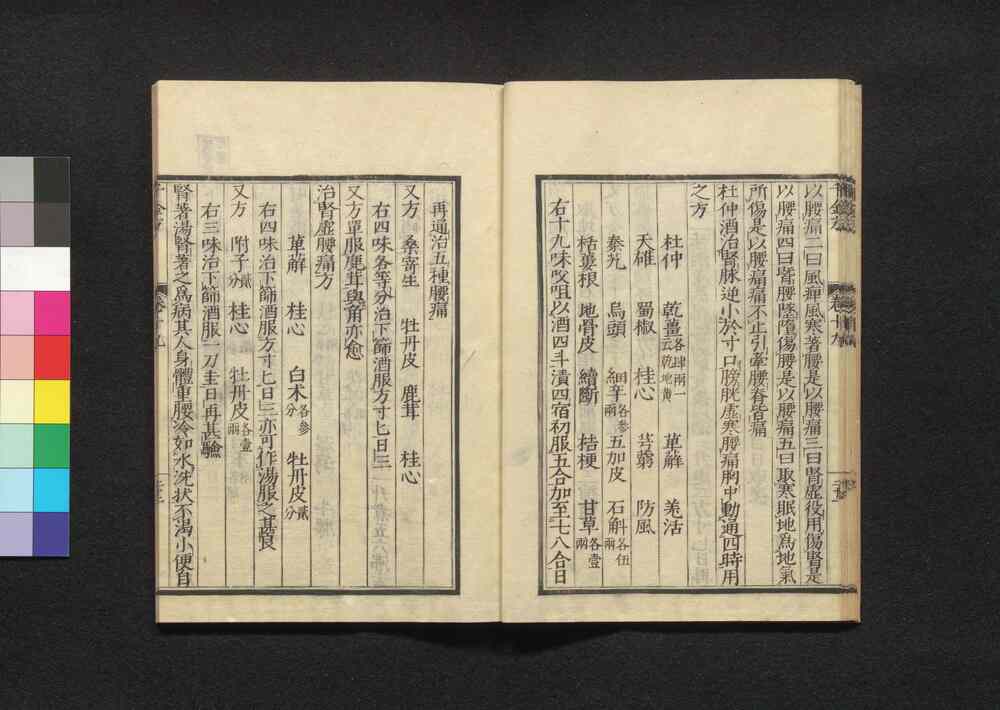 以腰痛二曰風痺風寒著腰是以腰痛三曰腎虛役用傷腎是
以腰痛四曰䐴腰墜墮傷腰是以腰痛五曰取寒眠地為地氣
所傷是以腰痛痛不止引牽腰脊皆痛
杜仲酒治腎脉逆小於寸口膀胱虛寒腰痛胸中動通四時用
之方
杜仲 乾薑各肆兩一云乾地黃 萆薢 羌活
天雄 蜀椒 桂心 芎藭 防風
秦艽 烏頭 細辛各參兩 五加皮 石斛各伍兩
栝蔞根 地骨皮 續斷 桔梗 甘草各壹兩
右十九味㕮咀以酒四斗漬四宿初服五合加至七八合日
再通治五種腰痛
又方 桑寄生 牡丹皮 鹿茸 桂心
右四味各等分治下篩酒服方寸匕日三
又方單服鹿茸與角亦愈
治腎虛腰痛方
萆薢 桂心 白朮各參分 牡丹皮貳分
右四味治下篩酒服方寸匕日三亦可作湯服之甚良
又方 附子貳分 桂心 牡丹皮各壹兩
右三味治下篩酒服一刀圭日再甚驗
腎著湯腎著之為病其人身體重腰冷如水洗状不渴小便自